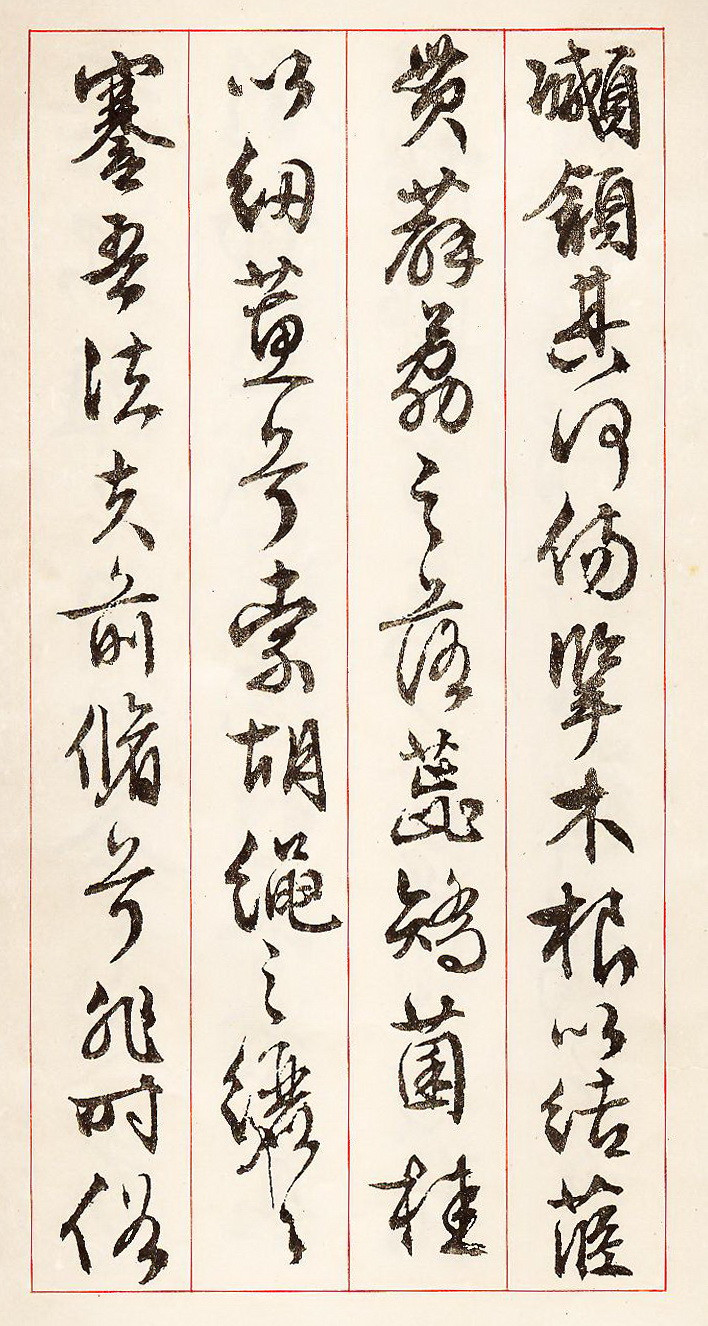 顑頷其何傷擥木根以結茝
貫薜荔之落蕊矯菌桂
以紉蕙兮索胡繩之纚々
謇吾法夫前脩兮非时俗